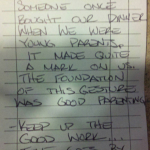 SOMEONE ONCE
BOUGHT OUR DINNER
WHEN WE WERE
YOUNG PARENTS,
IT MADE QUITE
A MARK ON US.
THE FOUNDATION
OF THIS GESTURE
WAS GOOD PARENTING
- KEEP UP THE
GOOD WORK...
BY